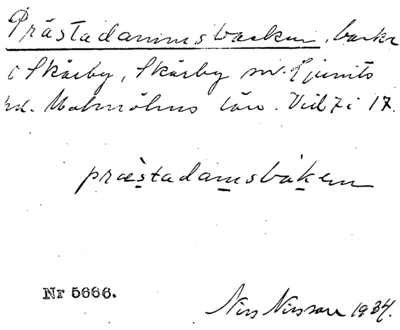 Prästadammsbacken, backe
i Skårby, Skårby sn. Ljunits
hd. Malmöhus län. Vid 7 i 17.
præstadamsbakem
Nr 5666.
Nils Nilsson 1934.